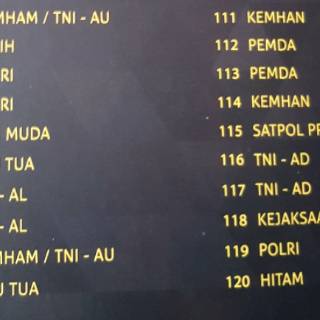 MHAM / TNI - AU
IH
RI
RI
MUDA
TUA
- AL
- AL
MHAM / TNI - AU
U TUA
111 KEMHAN
112 PEMDA
113 PEMDA
114 KEMHAN
115 SATPOL PP
116 TNI - AD
117 TNI - AD
118 KEJAKSAA
119 POLRI
120 HITAM